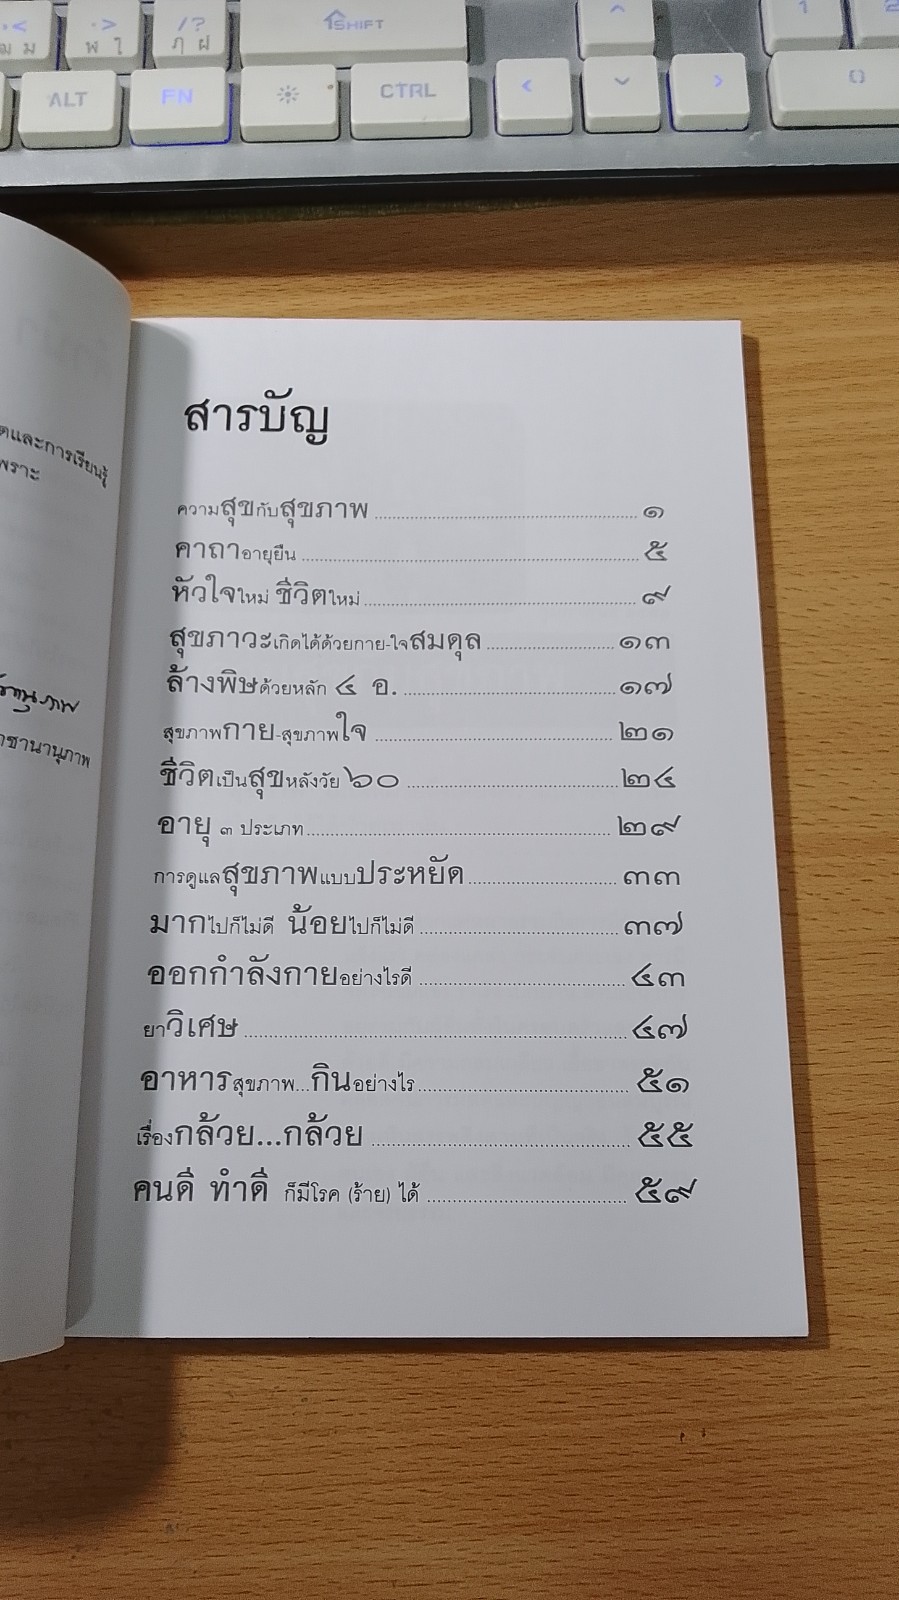 SHIFT
ALT
FN
CTRL
ตและการเรียนรู้
พราะ
าชานานุภาพ
สารบัญ
ความสุขกับสุขภาพ ๑
คาถาอายุยืน ๕
หัวใจใหม่ ชีวิตใหม่ ๙
สุขภาวะเกิดได้ด้วยกาย-ใจสมดุล ๑๓
ล้างพิษด้วยหลัก ๔ อ. ๑๗
สุขภาพกาย-สุขภาพใจ ๒๑
ชีวิตเป็นสุขหลังวัย ๖๐ ๒๔
อายุ ๓ ประเภท ๒๙
การดูแลสุขภาพแบบประหยัด ๓๓
มากไปก็ไม่ดี น้อยไปก็ไม่ดี ๓๗
ออกกำลังกายอย่างไรดี ๔๓
ยาวิเศษ ๔๗
อาหารสุขภาพ...กินอย่างไร ๕๑
เรื่องกล้วย...กล้วย ๕๕
คนดี ทำดี ก็มีโรค (ร้าย) ได้ ๕๙